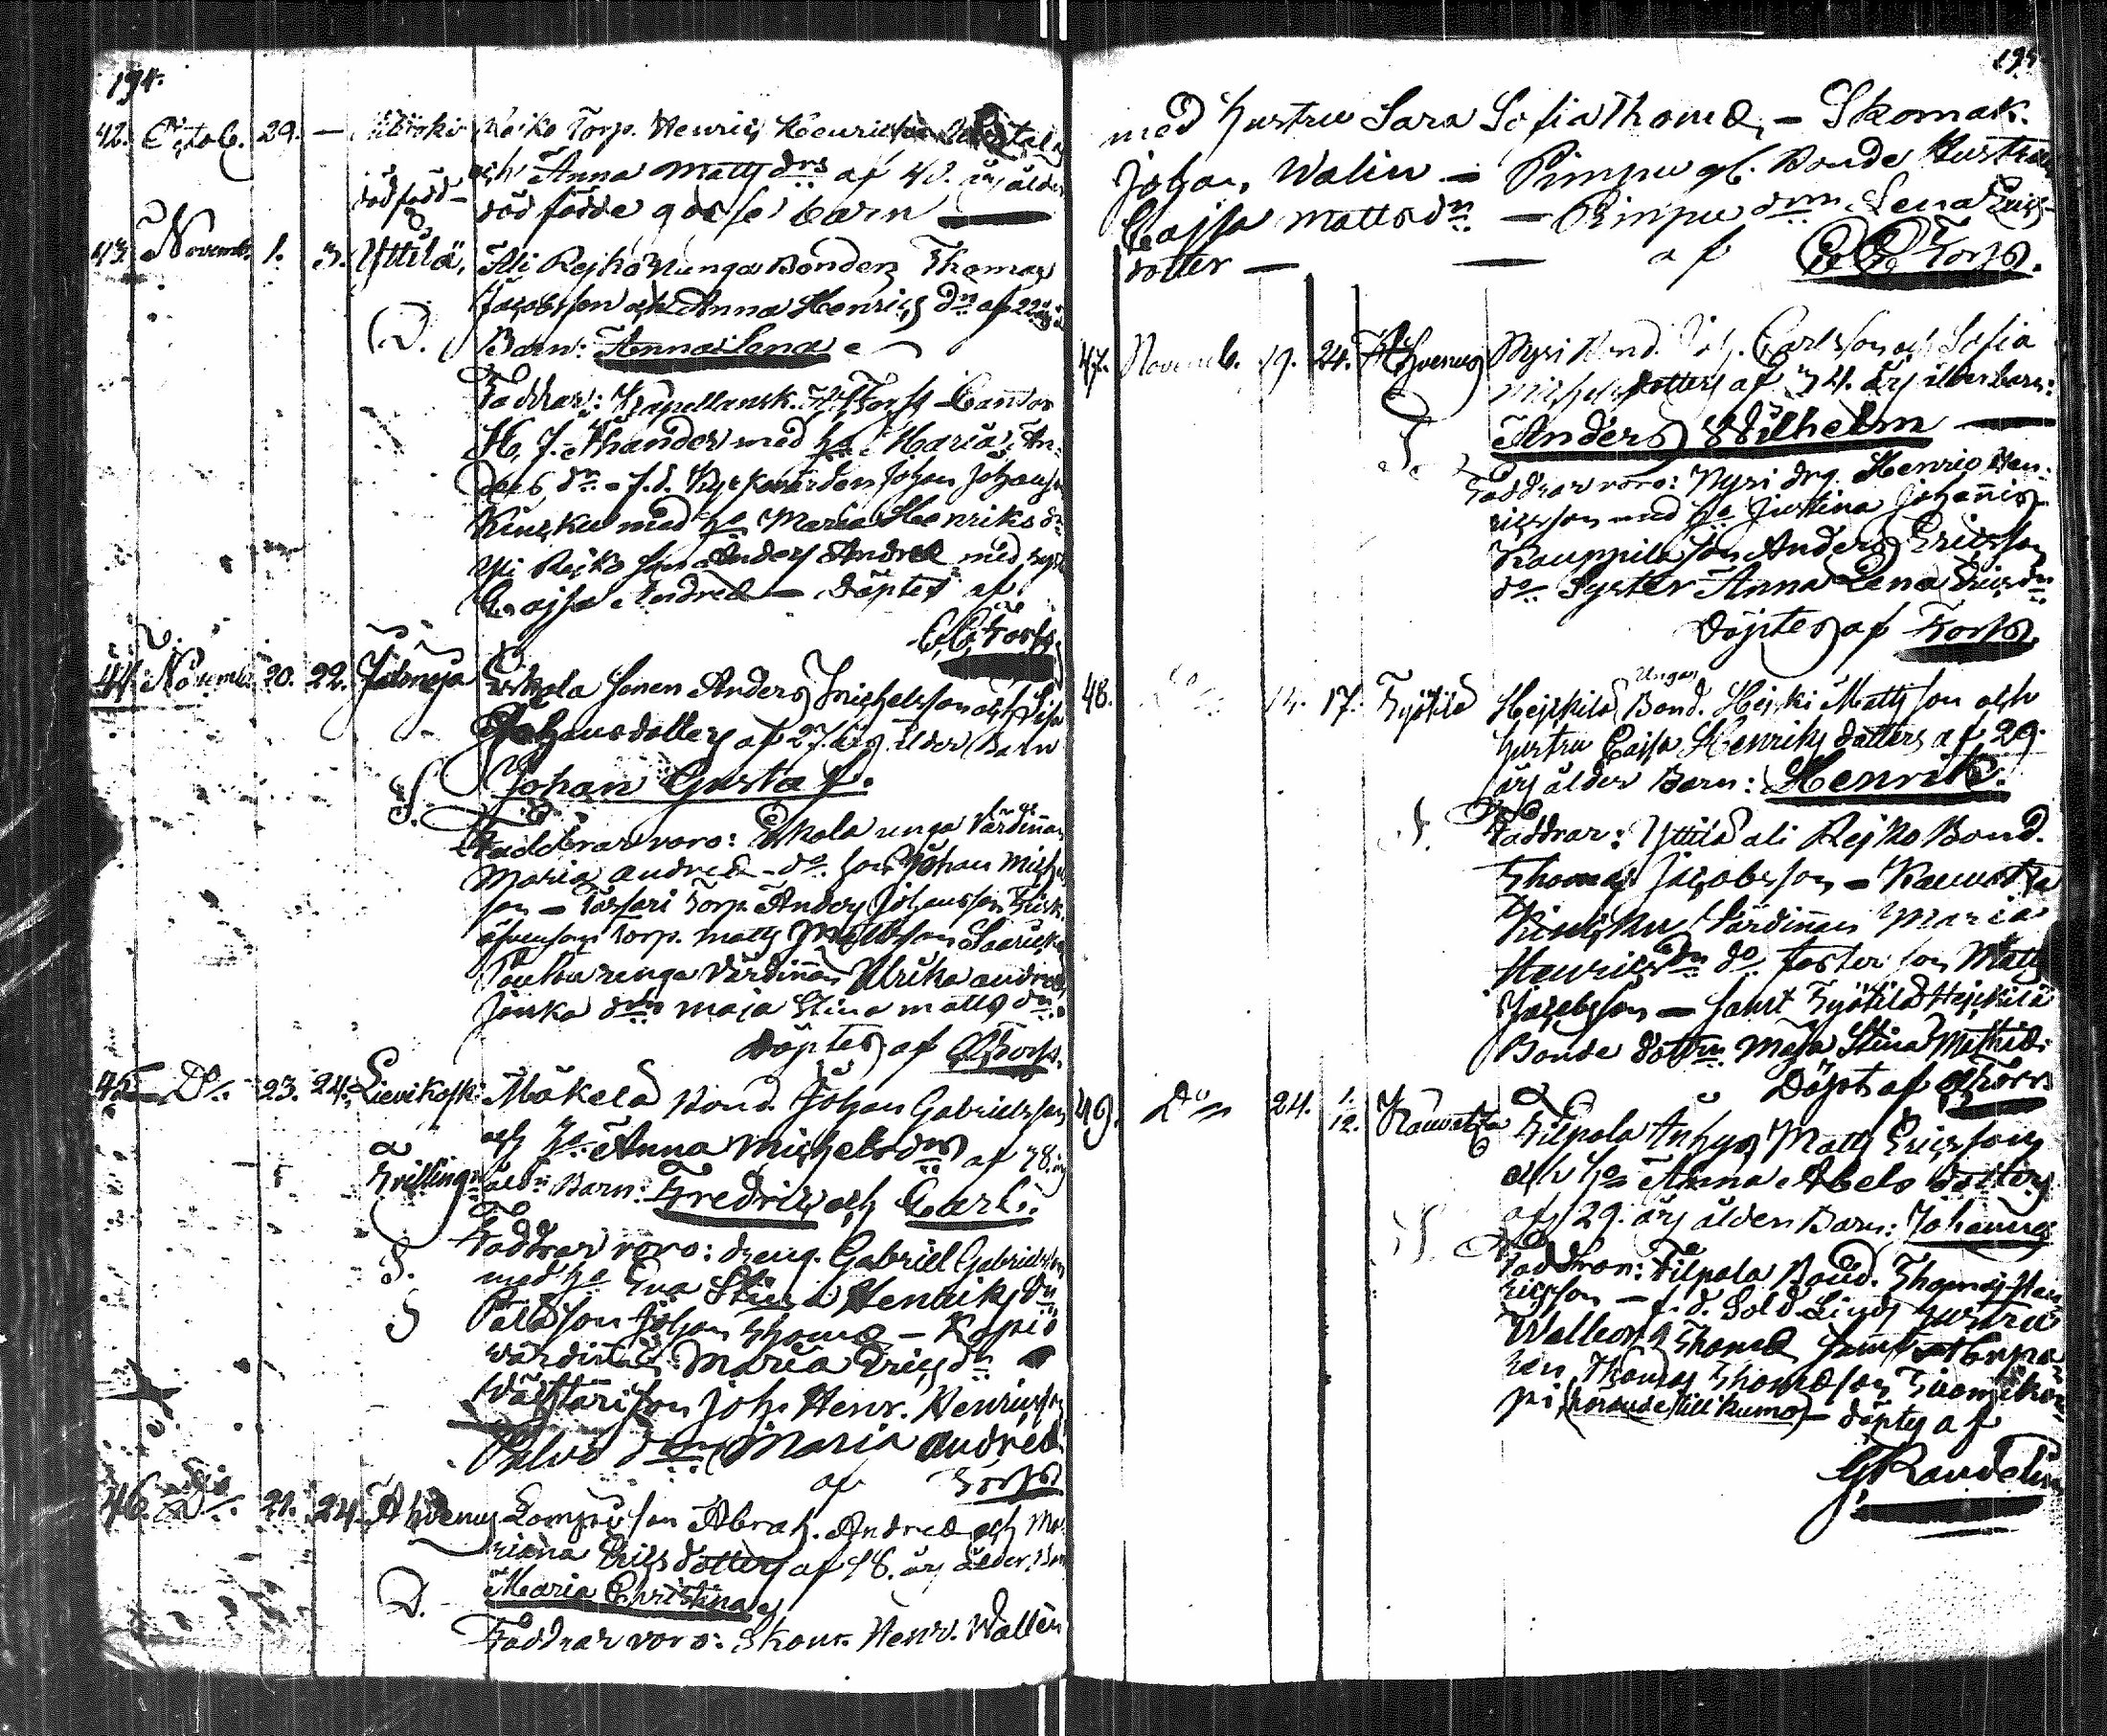 194.
42. Octob. 29. — Rejko Torp. Henric Henricsson
och Anna Matts drs af 40. års ålder
dödfödd dödfödde gosse barn —
43. Novemb. 1. 3. Yttilä, Ali Rejko Unga Bonden Thomas
Jacobsson och Anna Henrics dn af 22
D. Barn: Anna Lena
Faddrar: Kapellansk. Forss Cantor
H. J. Thander med ho Maria An-
ders dn - f.d. Kyrkovärden Johan Johansson
Kinsku med ho Maria Henriks dn
Yli Rejko son Anders Andreæ med syst
Cajsa Andreæ — döptes af
C. C. Forss
44. Novemb. 20. 22. Eskola sonen Anders Michelsson och Lisa
Johansdotters af 27. års ålder Barn
Johan Gustaf.
S.
Faddrar voro: Eskola unga Värdinnan
Maria Andreæ - do son Johan Michels
son — Torp. Anders Johansson
Torp. Matts
unga Värdinnan Ulrika Andreæ
maja Stina matts dn
Döptes af Forss.
45. Do. 23. 24. Lievikoski Mäkelä Bond. Johan Gabrielsson
och ho Anna Michelsdrs af 38. års
Tvillingar åldr Barn: Fredric och Carl.
S. Faddrar voro: dreng. Gabriel Gabrielsson
med ho Eva Stina Henriks dn
S son Johan Thomæ — Kopio
värdinnan Maria Erics dn
son Joh. Henr. Henricsson
Maria Andreæ
af Forss
46. Do. 21. 24. Ahvenus Lampu son Abrah. Andreæ och Ma-
riana Ericsdotters af 48. års ålder, Barn
D. Maria Christina
Faddrar voro: Skom. Henr. Wallen
195
med hustru Sara Sofia Thomæ, — Skomak.
Johan Walin — Pimpu gl. Bonde Hustrun
Cajsa Mattsdn — Pimpu drn Lena Erics-
dotter — — af C. C. Forss.
47. Novemb. 19. 24. Ahvenus Nyri Bond. Joh. Carlsson och Sofia
Michelsdotters af 34. års ålder barn:
S. Anders Wilhelm —
Faddrar voro: Nyri drg. Henric Hen-
ricsson med ho Justina Johannis
Kauppila son Anders Ericsson
do Syster Anna Lena Ericsdn
Döptes af Forss
48. 14. 17. Kyötilä Hejkilä Unga Bond. Hejki Mattsson och
hustru Caisa Henriks dotters af 29.
års ålder Barn: Henrik.
S. Faddrar: Yttilä ali Rejko Bond.
Thomas Jacobsson — Kauvatsa
Kinsku Värdinnan Maria
Henricsdn do foster son Matts
Jacobsson — samt Kyötilä Hejkilä
Bonde dottrn Maja Stina Mathiæ.
Döpt af Forss
49. Do 24. 1. 12. Kauvatsa Filpola Inhys Matts Ericsson
och ho Anna Abels dotters
af 29. års ålder Barn: Johannes
S. Faddrar: Filpola Bond. Thomas Hen-
ricsson — f. d. Sold. Linds hustru
Walborg Thomæ samt
Thomas Thomæson
pi (hörande till Kumo) — döptes af
G. Randelin